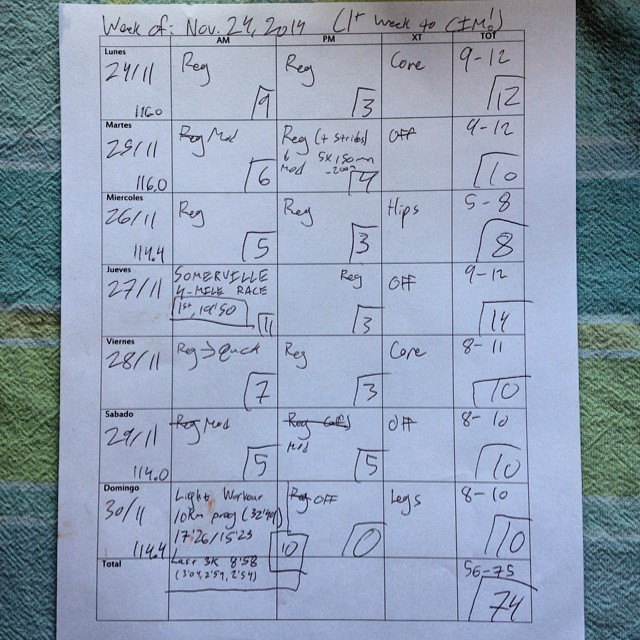 Week of: Nov. 24, 2014 (1st week to CIM!)
AM PM XT TOT
Lunes
24/11 Reg Reg Core 9-12
116.0 9 3 12
Martes
25/11 Reg Mod Reg (+ strides) OFF 9-12
5x150m
Mod -200m
116.0 6 4 10
Miercoles
26/11 Reg Reg Hips 5-8
114.4 5 3 8
Jueves
27/11 SOMERVILLE Reg OFF 9-12
4-MILE RACE
1st,
11 3 14
Viernes
28/11 Reg → quick Reg Core 8-11
7 3 10
Sabado
29/11 Reg Mod Reg Off 8-10
Mod
114.0 5 5 10
Domingo
30/11 Light Workout Reg OFF Legs 8-10
10km prog (32:49)
17:26/15:23
114.4 10 0 10
Total Last 3K 8:58 56-75
(3:04, 2:59, 2:54)
74